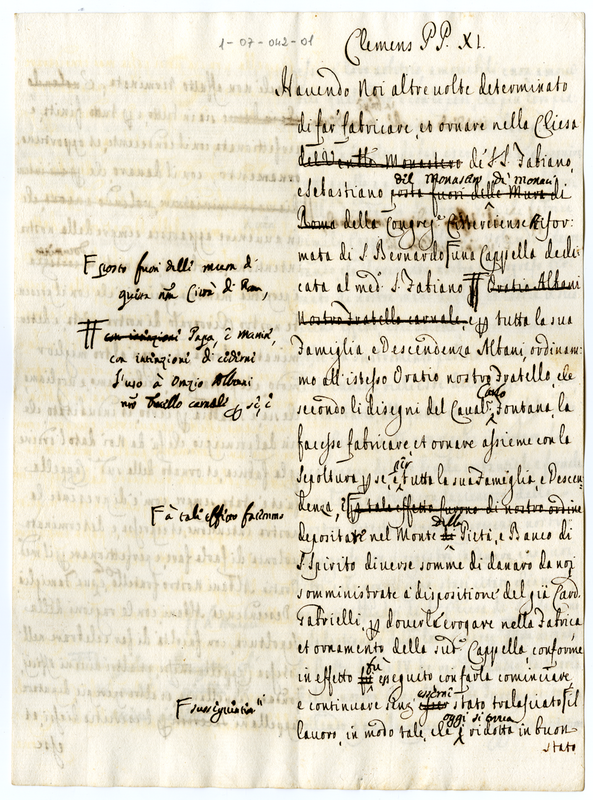 1-07-042-01
Clemens P P. XI.
Havendo Noi altre volte determinato
di far fabricare, et ornare nella Chiesa
Monastero de' S.S. Fabiano,
del Monastero di monaci
e Sebastiano posta fuori delle Mura di
Roma della Congreg.e Cisterciense Rifor-
mata di S. Bernardo una Cappella dedi-
cata al med.o S. Fabiano Oratio Albani
nostro fratello carnale e p tutta la sua
Famiglia, e Descendenza Albani, ordinam-
mo all'istesso Oratio nostro Fratello, che
Carlo
secondo li disegni del Caval.r Fontana, la
facesse fabricare, et ornare assieme con la
per
sepoltura p se, e tutta la sua Famiglia, e Descen-
denza, a tale effetto furono di nostro ordine
della
depositate nel Monte Pietà, e Banco di
S. Spirito diverse somme di danaro da noi
somministrate a' dispositione del già Card.
Gabrielli, p doverle erogare nella Fabrica
et ornamento della sud.a Cappella, conforme
fù
in effetto eseguito con farla cominciare,
e continuare senz' stato tralasciato il
oggi si trova
lavoro, in modo tale, che ridotta in buon
stato
posto fuori delle mura di
Papa,
con intenzioni di
l'uso à Orazio Albani
fratello carnale p se, e
à tale effetto facemmo